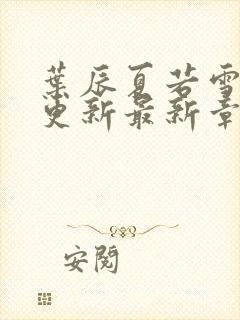 葉辰夏若雪
更新最新章
安閱